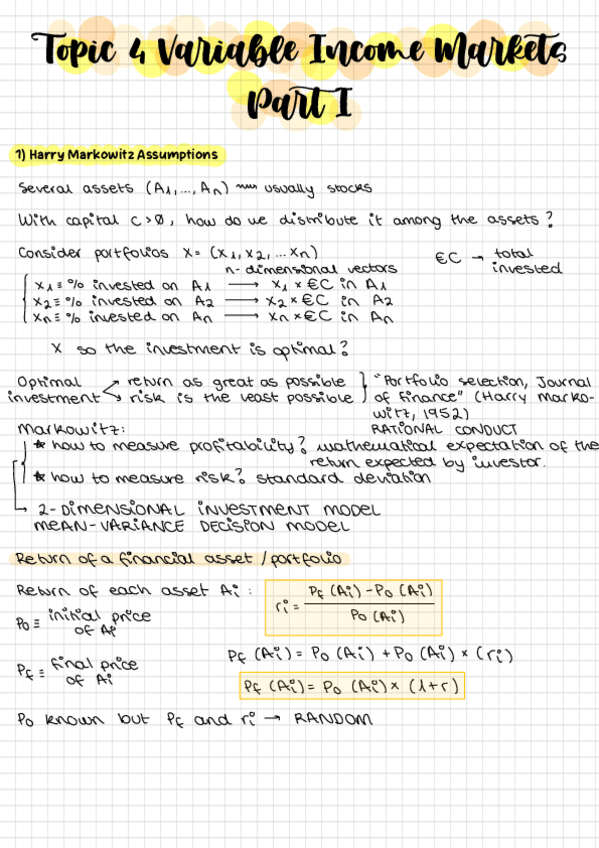 Topic 4 Variable Income Markets
Part I
1) Harry Markowitz Assumptions
Several assets (A1,..., An) usually stocks
With capital C>0, how do we distribute it among the assets?
Consider portfolios X= (X1, X2, ... Xn)
n-dimensional vectors
€C → total invested
X1 ≡ % invested on A1 → X1 × €C in A1
X2 ≡ % invested on A2 → X2 × €C in A2
Xn ≡ % invested on An → Xn × €C in An
X so the investment is optimal?
Optimal investment
return as great as possible
risk is the least possible
"Portfolio selection, Journal
of finance" (Harry Marko-
witz, 1952)
RATIONAL CONDUCT
Markowitz:
* how to measure profitability? mathematical expectation of the
return expected by investor.
* how to measure risk? standard deviation
→ 2-DIMENSIONAL INVESTMENT MODEL
MEAN-VARIANCE DECISION MODEL
Return of a financial asset / portfolio
Return of each asset Ai : ri = (Pf (Ai) - P0 (Ai)) / P0 (Ai)
P0 ≡ initial price
of Ai
Pf ≡ final price
of Ai
Pf (Ai) = P0 (Ai) + P0 (Ai) × (ri)
Pf (Ai) = P0 (Ai) × (1+r)
P0 known but Pf and ri → RANDOM